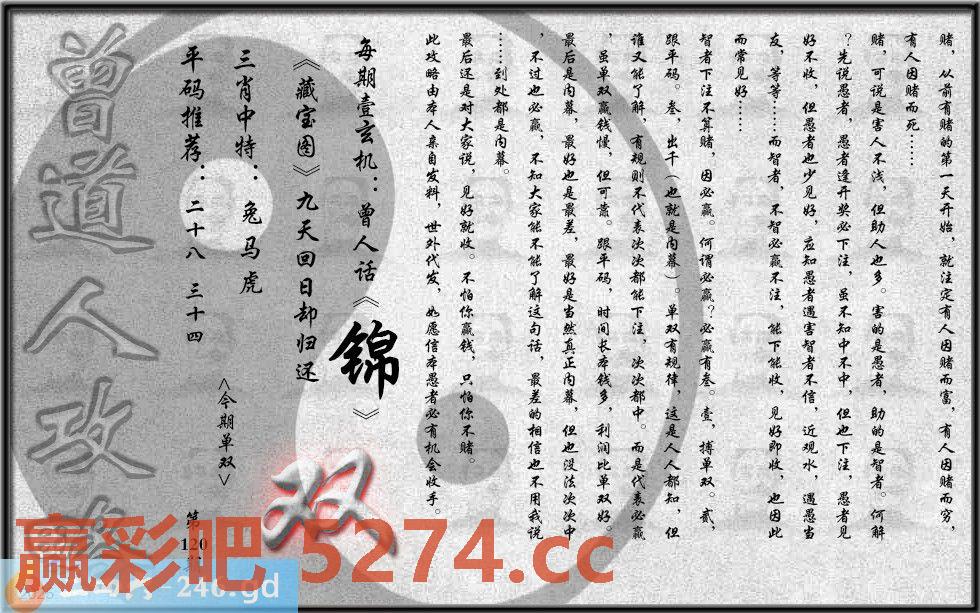 赌，从前有赌的第一天开始，就注定有人因赌而富，有人因赌而穷，
有人因赌而死……
赌，可说是害人不浅，但助人也多。害的是愚者，助的是智者。何解
？先说愚者，愚者逢开奖必下注，虽不知中不中，但也下注，愚者见
好不收，但愚者也少见好，应知愚者遇害智者不信，近观水，遇愚当
友，等等……而智者，不智必赢不注，能下能收，见好即收，也因此
而常见好……
智者下注不算赌，因必赢。何谓必赢？必赢有叁。壹，搏单双。贰，
跟平码。叁，出千（也就是内幕）。单双有规律，这是人人都知，但
谁又能了解，有规则不代表次次都能下注，次次都中。而是代表必赢
，虽单双赢钱慢，但可靠。跟平码，时间长本钱多，利润比单双好。
最后是内幕，最好也是最差，最好是当然真正内幕，但也没法次次中
，不过也必赢，不知大家能不能了解这句话，最差的相信也不用我说
……到处都是内幕。
最后还是对大家说，见好就收。不怕你赢钱，只怕你不赌。
此攻略由本人亲自发料，世外代发，如愿信本愚者必有机会收手。
每期壹玄机：曾人话《锦》
《藏宝图》九天回日却归还
三肖中特：兔马虎
平码推荐：二十八 三十四
<今期单双>
双
第120期
曾道人攻
赢彩吧 5274.cc
246.gd